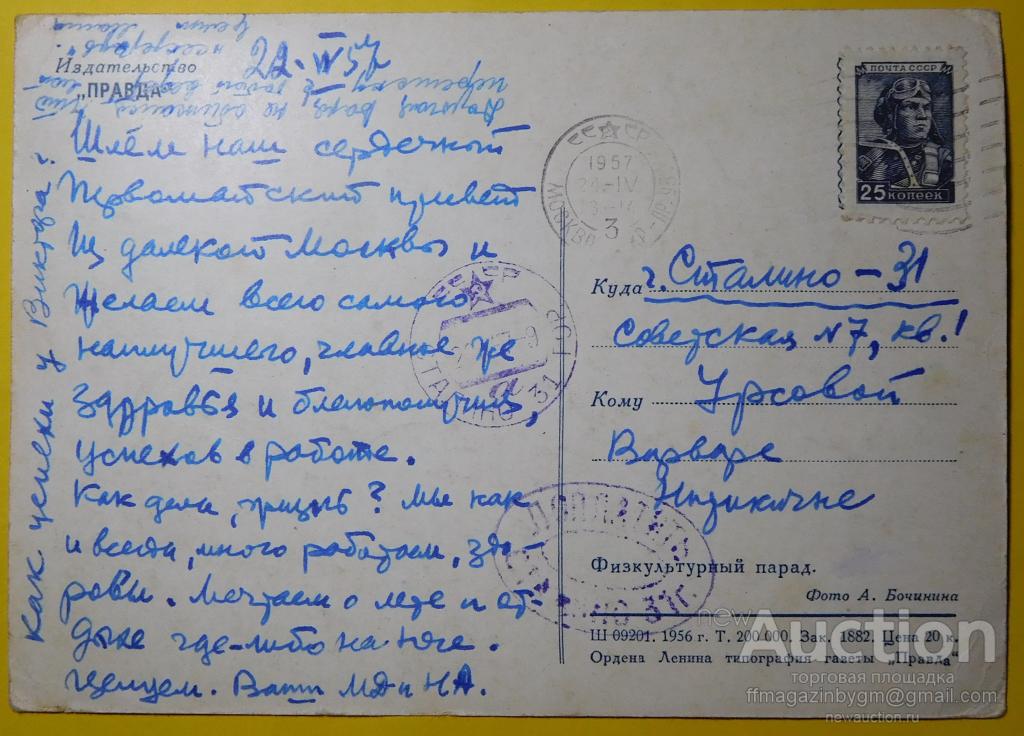 Издательство
„ПРАВДА"
22. IV 57
Шлём наш сердечный
Первомайский привет
Из далекой Москвы и
Желаем всего самого
наилучшего, главное же
Здоровья и благополучия,
успехов в работе.
Как дела, жизнь? Мы как
и всегда, много работаем, здо-
ровы. Мечтаем о лете и от-
дыхе где-либо на Юге.
Целуем. Ваши МД и НА.
Как успехи у Виктора?
ПОЧТА СССР
25 КОПЕЕК
СССР
1957
24-IV
МОСКВА
3
СССР
СТАЛИНО 31
ДОПЛАТИТЬ
СТАЛИНО 31
Куда г. Сталино - 31
Советская N 7, кв. 1
Кому Урсовой
Варваре
Физкультурный парад.
Фото А. Бочинина
Ш 09201. 1956 г. Т. 200 000. Зак. 1882. Цена 20 к.
Ордена Ленина типография газеты „Правда"
newAuction
торговая площадка
ffmagazinbygm@gmail.com
newauction.ru